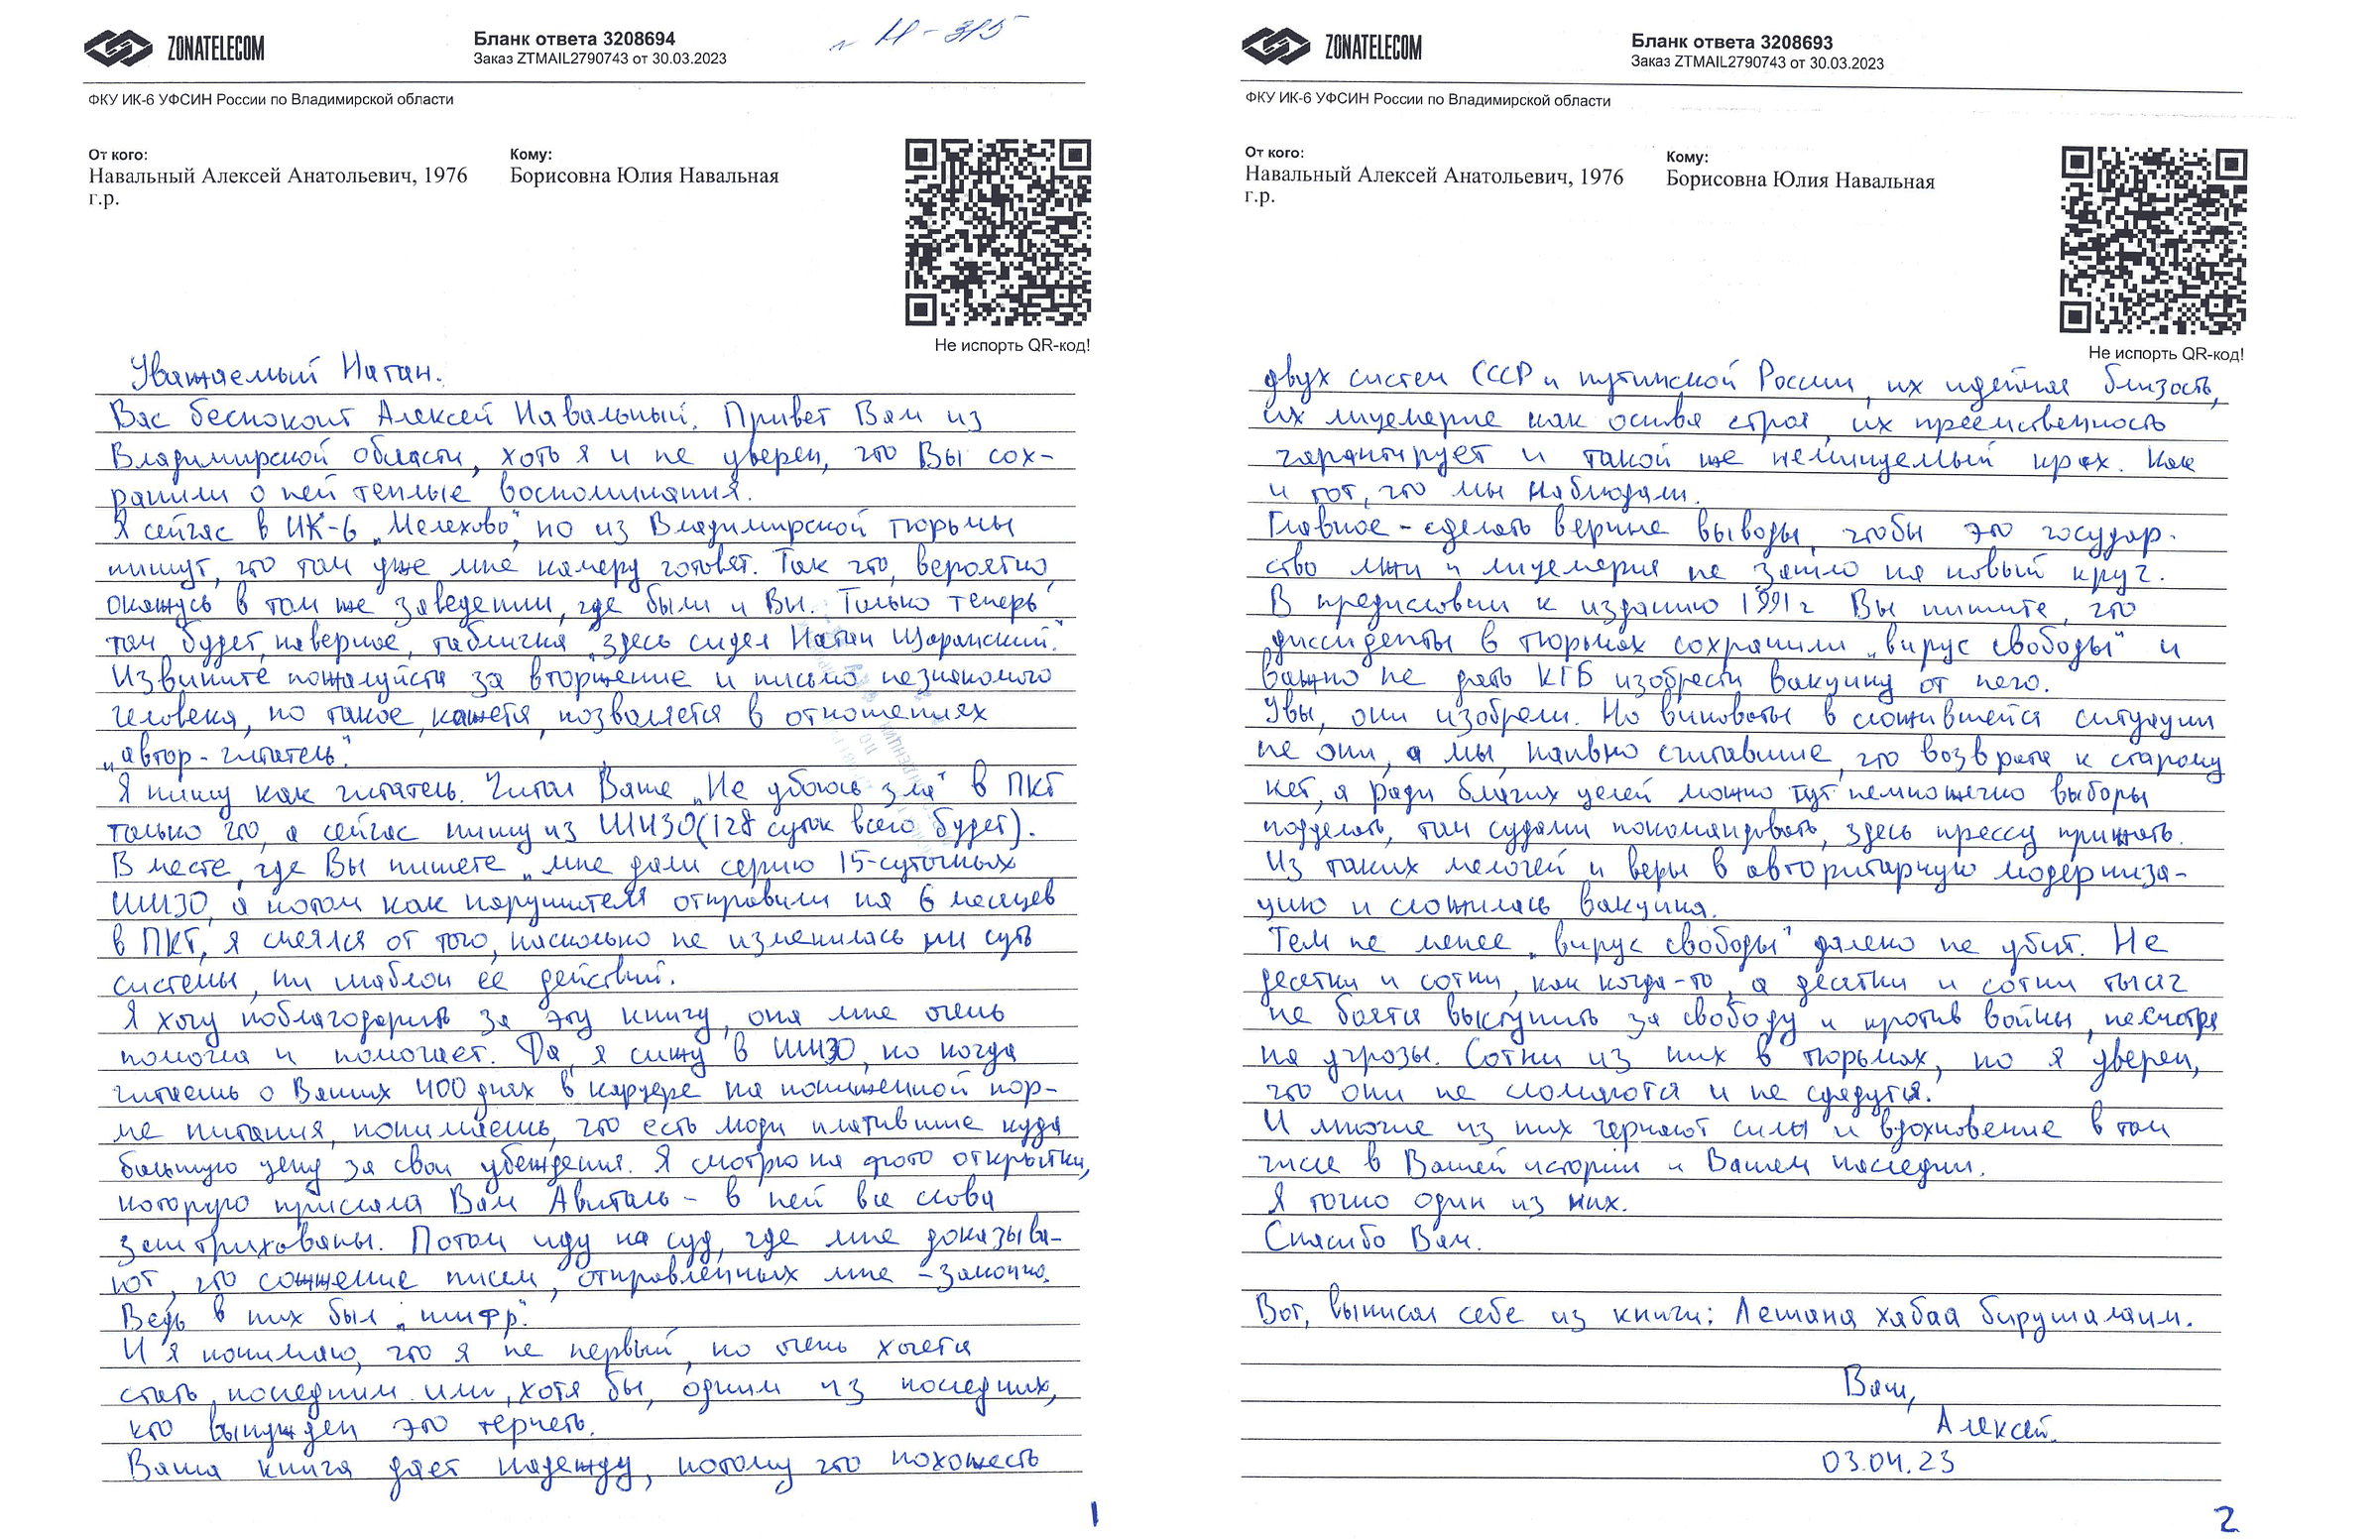 ZONATELECOM
Бланк ответа 3208694
Заказ ZTMAIL2790743 от 30.03.2023
ФКУ ИК-6 УФСИН России по Владимирской области
От кого:
Навальный Алексей Анатольевич, 1976
г.р.
Кому:
Борисовна Юлия Навальная
Не испорть QR-код!
Уважаемый Натан.
Вас беспокоит Алексей Навальный. Привет Вам из
Владимирской области, хоть я и не уверен, что Вы сох-
ранили о ней теплые воспоминания.
Я сейчас в ИК-6 „Мелехово", но из Владимирской тюрьмы
пишут, что там уже мне камеру готовят. Так что, вероятно,
окажусь в том же заведении, где были и Вы. Только теперь
там будет, наверное, табличка „здесь сидел Натан Щаранский".
Извините пожалуйста за вторжение и письмо незнакомого
человека, но такое, кажется, позволяется в отношениях
„автор-читатель".
Я пишу как читатель. Читал Ваше „Не убоюсь зла" в ПКТ
только что, а сейчас пишу из ШИЗО (128 суток всего будет).
В месте, где Вы пишете „мне дали серию 15-суточных
ШИЗО, а потом как нарушителя отправили на 6 месяцев
в ПКТ, я смеялся от того, насколько не изменилась ни суть
системы, ни шаблон её действий.
Я хочу поблагодарить за эту книгу, она мне очень
помогла и помогает. Да, я сижу в ШИЗО, но когда
читаешь о Ваших 400 днях в карцере на пониженной нор-
ме питания, понимаешь, что есть люди платившие куда
большую цену за свои убеждения. Я смотрю на фото открытки,
которую прислала Вам Авиталь - в ней все слова
заштрихованы. Потом иду на суд, где мне доказыва-
ют, что сожжение писем, отправленных мне - законно.
Ведь в них был „шифр".
И я понимаю, что я не первый, но очень хочется
стать последним или, хотя бы, одним из последних,
кто вынужден это терпеть.
Ваша книга дает надежду, потому что похожесть
1
ZONATELECOM
Бланк ответа 3208693
Заказ ZTMAIL2790743 от 30.03.2023
ФКУ ИК-6 УФСИН России по Владимирской области
От кого:
Навальный Алексей Анатольевич, 1976
г.р.
Кому:
Борисовна Юлия Навальная
Не испорть QR-код!
двух систем СССР и путинской России, их идейная близость,
их лицемерие как основа строя, их преемственность
гарантирует и такой же неминуемый крах. Как
и тот, что мы наблюдали.
Главное - сделать верные выводы, чтобы это государ-
ство лжи и лицемерия не зашло на новый круг.
В предисловии к изданию 1991 г Вы пишите, что
диссиденты в тюрьмах сохранили „вирус свободы" и
важно не дать КГБ изобрести вакцину от него.
Увы, они изобрели. Но виноваты в сложившейся ситуации
не они, а мы, наивно считавшие, что возврата к старому
нет, а ради благих целей можно тут немножечко выборы
подделать, там судами покомандовать, здесь прессу прижать.
Из таких мелочей и веры в авторитарную модерниза-
цию и сложилась вакцина.
Тем не менее „вирус свободы" далеко не убит. Не
десятки и сотни, как когда-то, а десятки и сотни тысяч
не боятся выступить за свободу и против войны, несмотря
на угрозы. Сотни из них в тюрьмах, но я уверен,
что они не сломаются и не сдадутся.
И многие из них черпают силы и вдохновение в том
числе в Вашей истории и Вашем наследии.
Я точно один из них.
Спасибо Вам.
Вот, выписал себе из книги: Лешана хабаа бирушалаим.
Ваш,
Алексей.
03.04.23
2